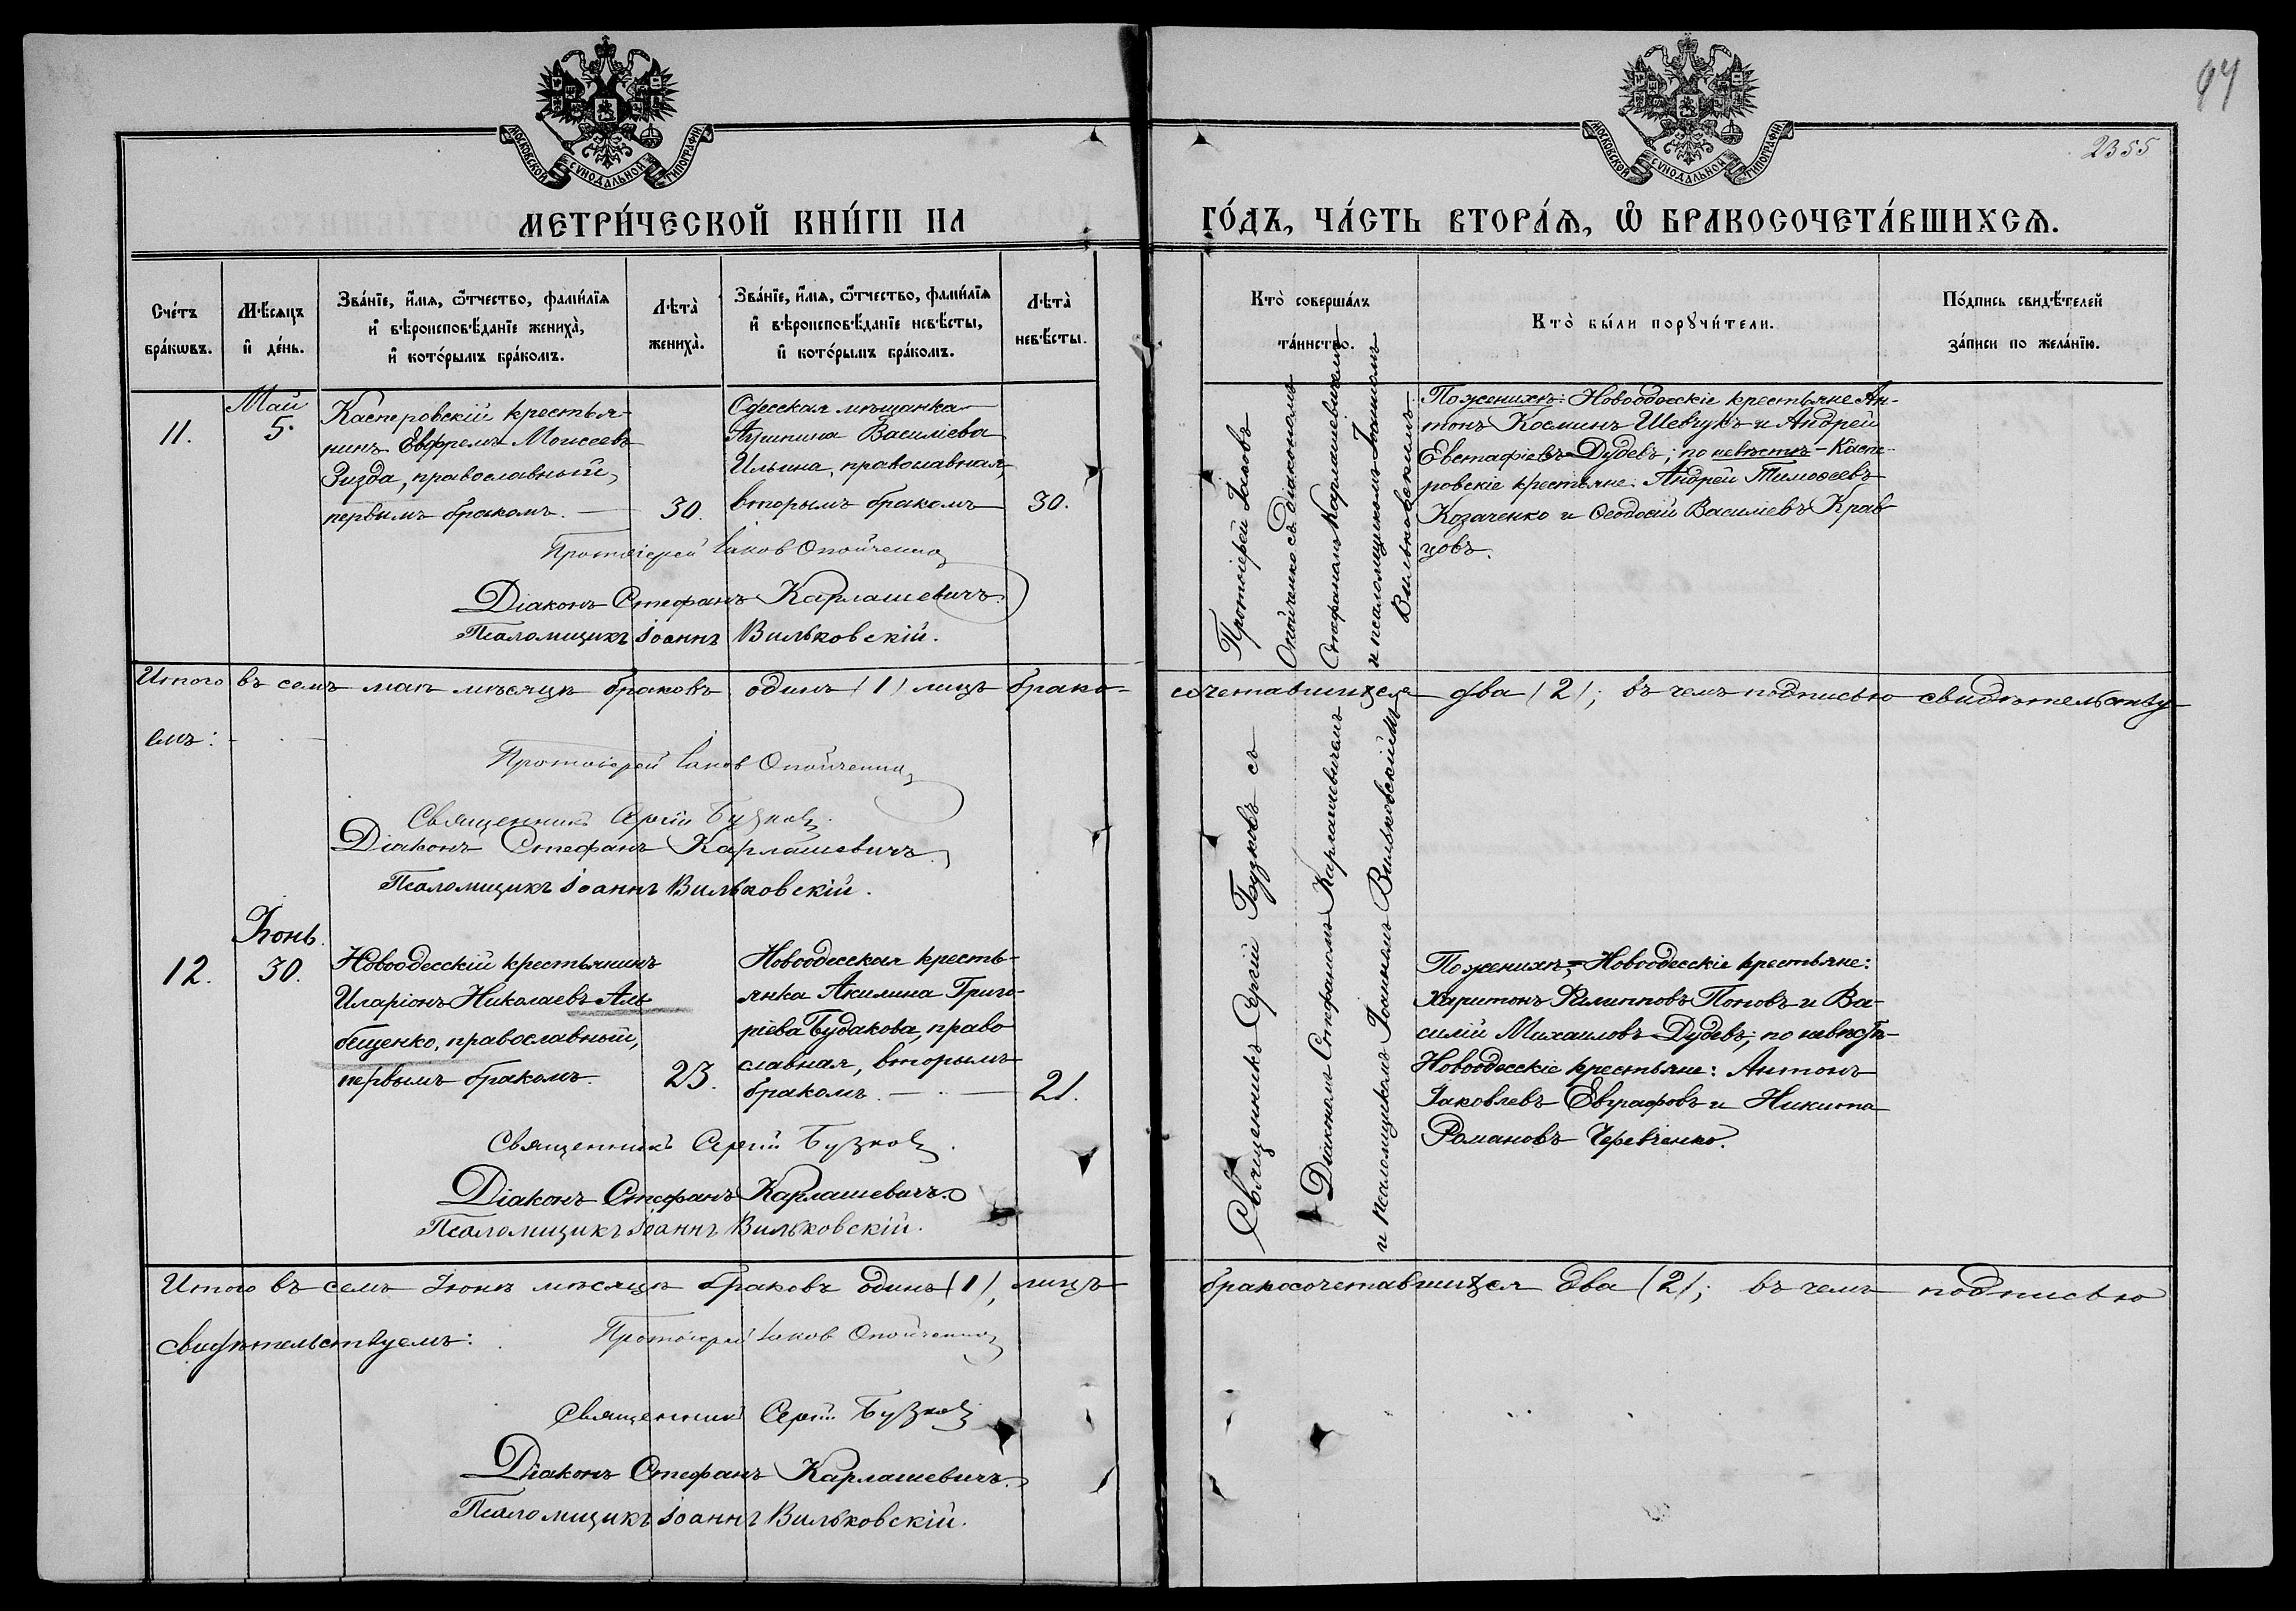 94
2355
МОСКОВСКОЙ СѴНОДАЛЬНОЙ ТИПОГРАФІИ
МОСКОВСКОЙ СѴНОДАЛЬНОЙ ТИПОГРАФІИ
МЕТРИ́ЧЕСКОЙ КНИ́ГИ НА ГО́ДЪ, ЧА́СТЬ ВТОРА́Ѧ, Ѡ҆ БРАКОСОЧЕТА́ВШИХСѦ.
Сче́тъ бра́кѡвъ.
Мѣ́сяцъ и҆ де́нь.
Зва́нїе, и҆́мѧ, ѻ҆́тчество, фами́лїѧ
и҆ вѣроисповѣ́данїе жениха̀,
и҆ кото́рымъ бра́комъ.
Лѣта̀ жениха̀.
Зва́нїе, и҆́мѧ, ѻ҆́тчество, фами́лїѧ
и҆ вѣроисповѣ́данїе невѣ́сты,
и҆ кото́рымъ бра́комъ.
Лѣта̀ невѣ́сты.
Кто̀ соверша́лъ
та́инство.
Кто̀ бы́ли порꙋчи́тели.
По́дпись свидѣ́телей
за́писи по жела́нїю.
11.
Май
5.
Касперовскій крестья-
нинъ Евфремъ Моисеевъ
Зизда, православный,
первымъ бракомъ. —
30.
Одесская мѣщанка
Агрипина Василіева
Ильина, православная,
вторымъ бракомъ
30.
Протоіерей Іаковъ
Опойченко съ діакономъ
Стефаномъ Карлашевичемъ
и псаломщикомъ Іоанномъ
Вильковскимъ.
По женихѣ: Новоодесскіе крестьяне Ан-
тонъ Косминъ Шевчукъ и Андрей
Евстафіевъ Дудевъ; по невѣстѣ - Каспе-
ровскіе крестьяне: Андрей Тимоѳеевъ
Козаченко и Ѳеодосій Василіевъ Крав-
цовъ.
Протоіерей Іаков Опойченко
Діаконъ Стефанъ Карлашевичъ
Псаломщикъ Іоаннъ Вильковскій.
Итого въ семъ маѣ мѣсяцѣ браковъ одинъ (1) лицъ брако-
сочетавшихся два (2); въ чемъ подписью свидѣтельству-
емъ:
Протоіерей Іаков Опойченко
Священникъ Сергій Бузков
Діаконъ Стефанъ Карлашевичъ.
Псаломщикъ Іоаннъ Вильковскій.
12.
Іюнь.
30.
Новоодесскій крестьянинъ
Иларіонъ Николаевъ Аль-
бещенко, православный,
первымъ бракомъ.
23.
Новоодесская кресть-
янка Акилина Григо-
ріева Будакова, право
славная, вторымъ
бракомъ. —
21.
Священникъ Сергій Бузковъ съ
Діакономъ Стефаномъ Карлашевичемъ
и псаломщикомъ Іоанномъ Вильковскіимъ
По женихѣ, = Новоодесскіе крестьяне:
Харитонъ Филипповъ Поповъ и Ва-
силій Михаиловъ Дудевъ; по невѣстѣ -
Новоодесскіе крестьяне: Антонъ
Іаковлевъ Евграфовъ и Никита
Романовъ Черевченко.
Священникъ Сергій Бузков.
Діаконъ Стефанъ Карлашевичъ.
Псаломщикъ Іоаннъ Вильковскій.
Итого въ семъ Іюнѣ мѣсяцѣ браковъ одинъ (1), лицъ
бракосочетавшихся два (2); въ чемъ подписью
свидѣтельствуемъ:
Протоіерей Іаков Опойченко
Священникъ Сергій Бузков
Діаконъ Стефанъ Карлашевичъ.
Псаломщикъ Іоаннъ Вильковскій.